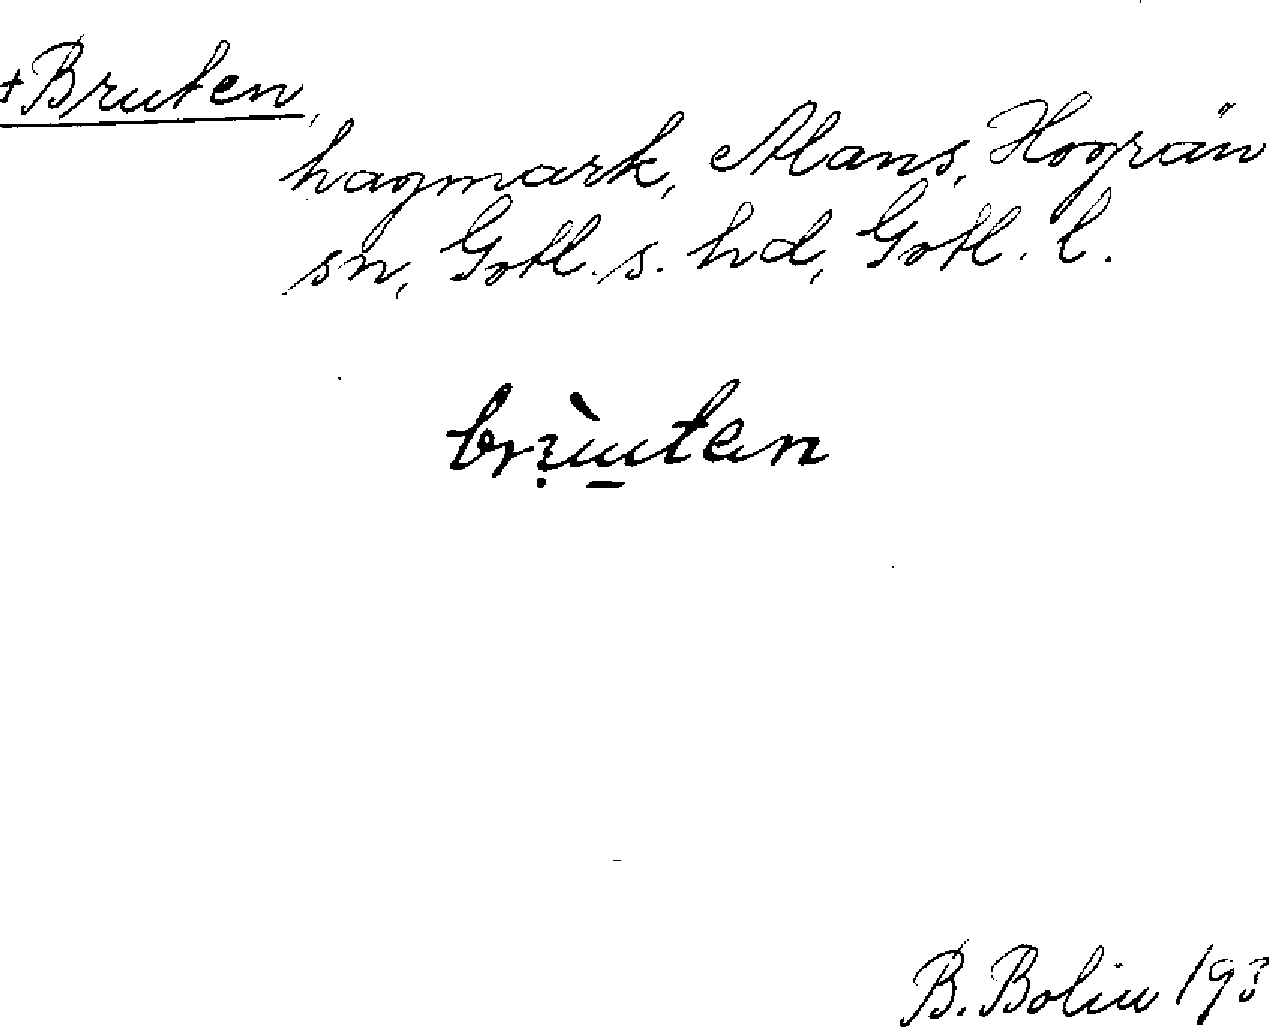 +Bruten,
hagmark, Alans, Hogrän
sn, Gotl. s. hd, Gotl. l.
B. Bolin 193